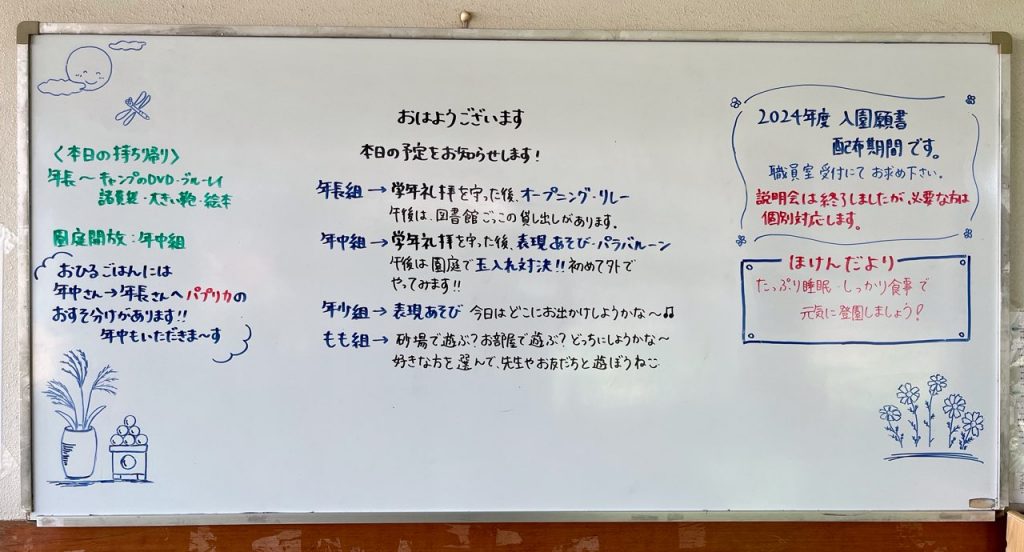 〈本日の持ち帰り〉
年長〜キャンプのDVD・ブルーレイ
諸費袋・大きい鞄・絵本
園庭開放：年中組
おひるごはんには
年中さん→年長さんへパプリカの
おすそ分けがあります!!
年中もいただきま〜す
おはようございます
本日の予定をお知らせします！
年長組→学年礼拝を守った後、オープニング・リレー
午後は、図書館ごっこの貸し出しがあります。
年中組→学年礼拝を守った後、表現あそび・パラバルーン
午後は園庭で玉入れ対決!!初めて外で
やってみます!!
年少組→表現あそび 今日はどこにお出かけしようかな〜♫
もも組→砂場で遊ぶ？お部屋で遊ぶ？どっちにしようかな〜
好きな方を選んで、先生やお友だちと遊ぼうね
2024年度 入園願書
配布期間です。
職員室受付にてお求め下さい。
説明会は終了しましたが、必要な方は
個別対応します。
ほけんだより
たっぷり睡眠・しっかり食事で
元気に登園しましょう！